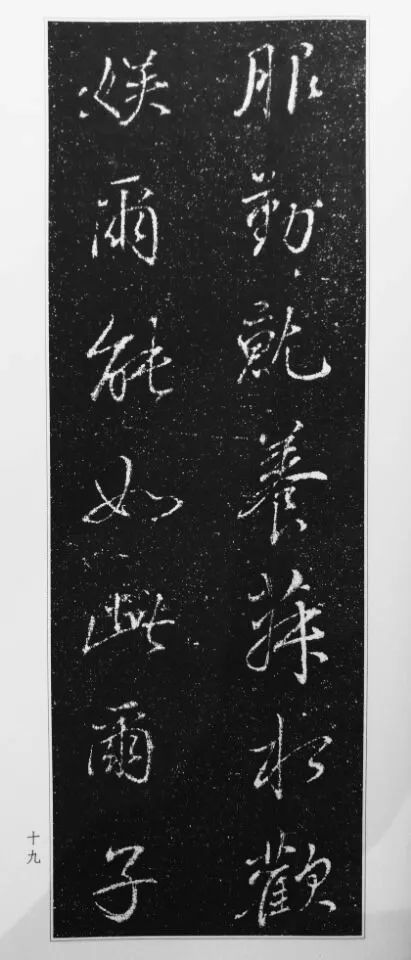 服勤就養菽水歡
娛爾能如此爾子
十九